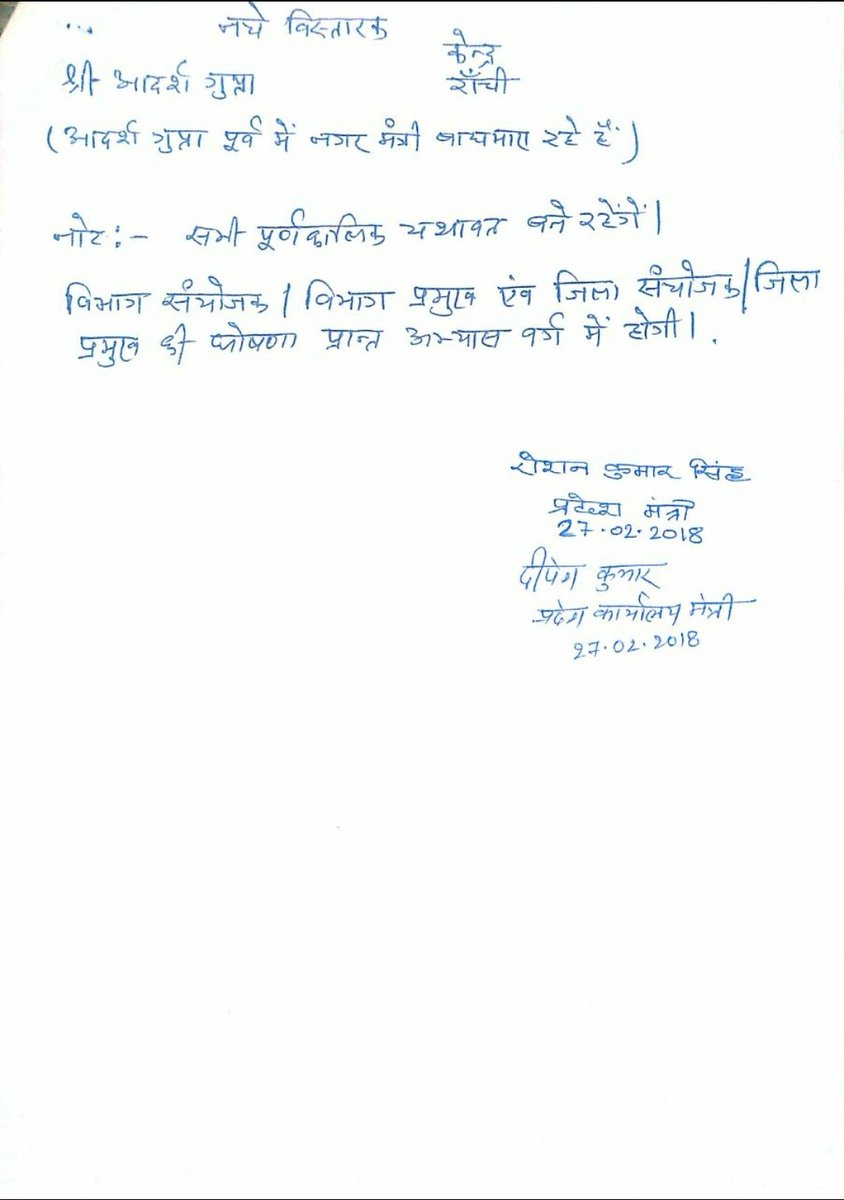 ...
नये विस्तारक
केन्द्र
श्री आदर्श गुप्ता
राँची
(आदर्श गुप्ता पूर्व में नगर मंत्री बाघमारा रहे हैं)
नोट:- सभी पूर्णकालिक यथावत बने रहेंगें।
विभाग संयोजक / विभाग प्रमुख एंव जिला संयोजक/जिला
प्रमुख की घोषणा प्रान्त अभ्यास वर्ग में होगी।.
रोशन कुमार सिंह
प्रदेश मंत्री
27.02.2018
दीपेश कुमार
प्रदेश कार्यालय मंत्री
27.02.2018